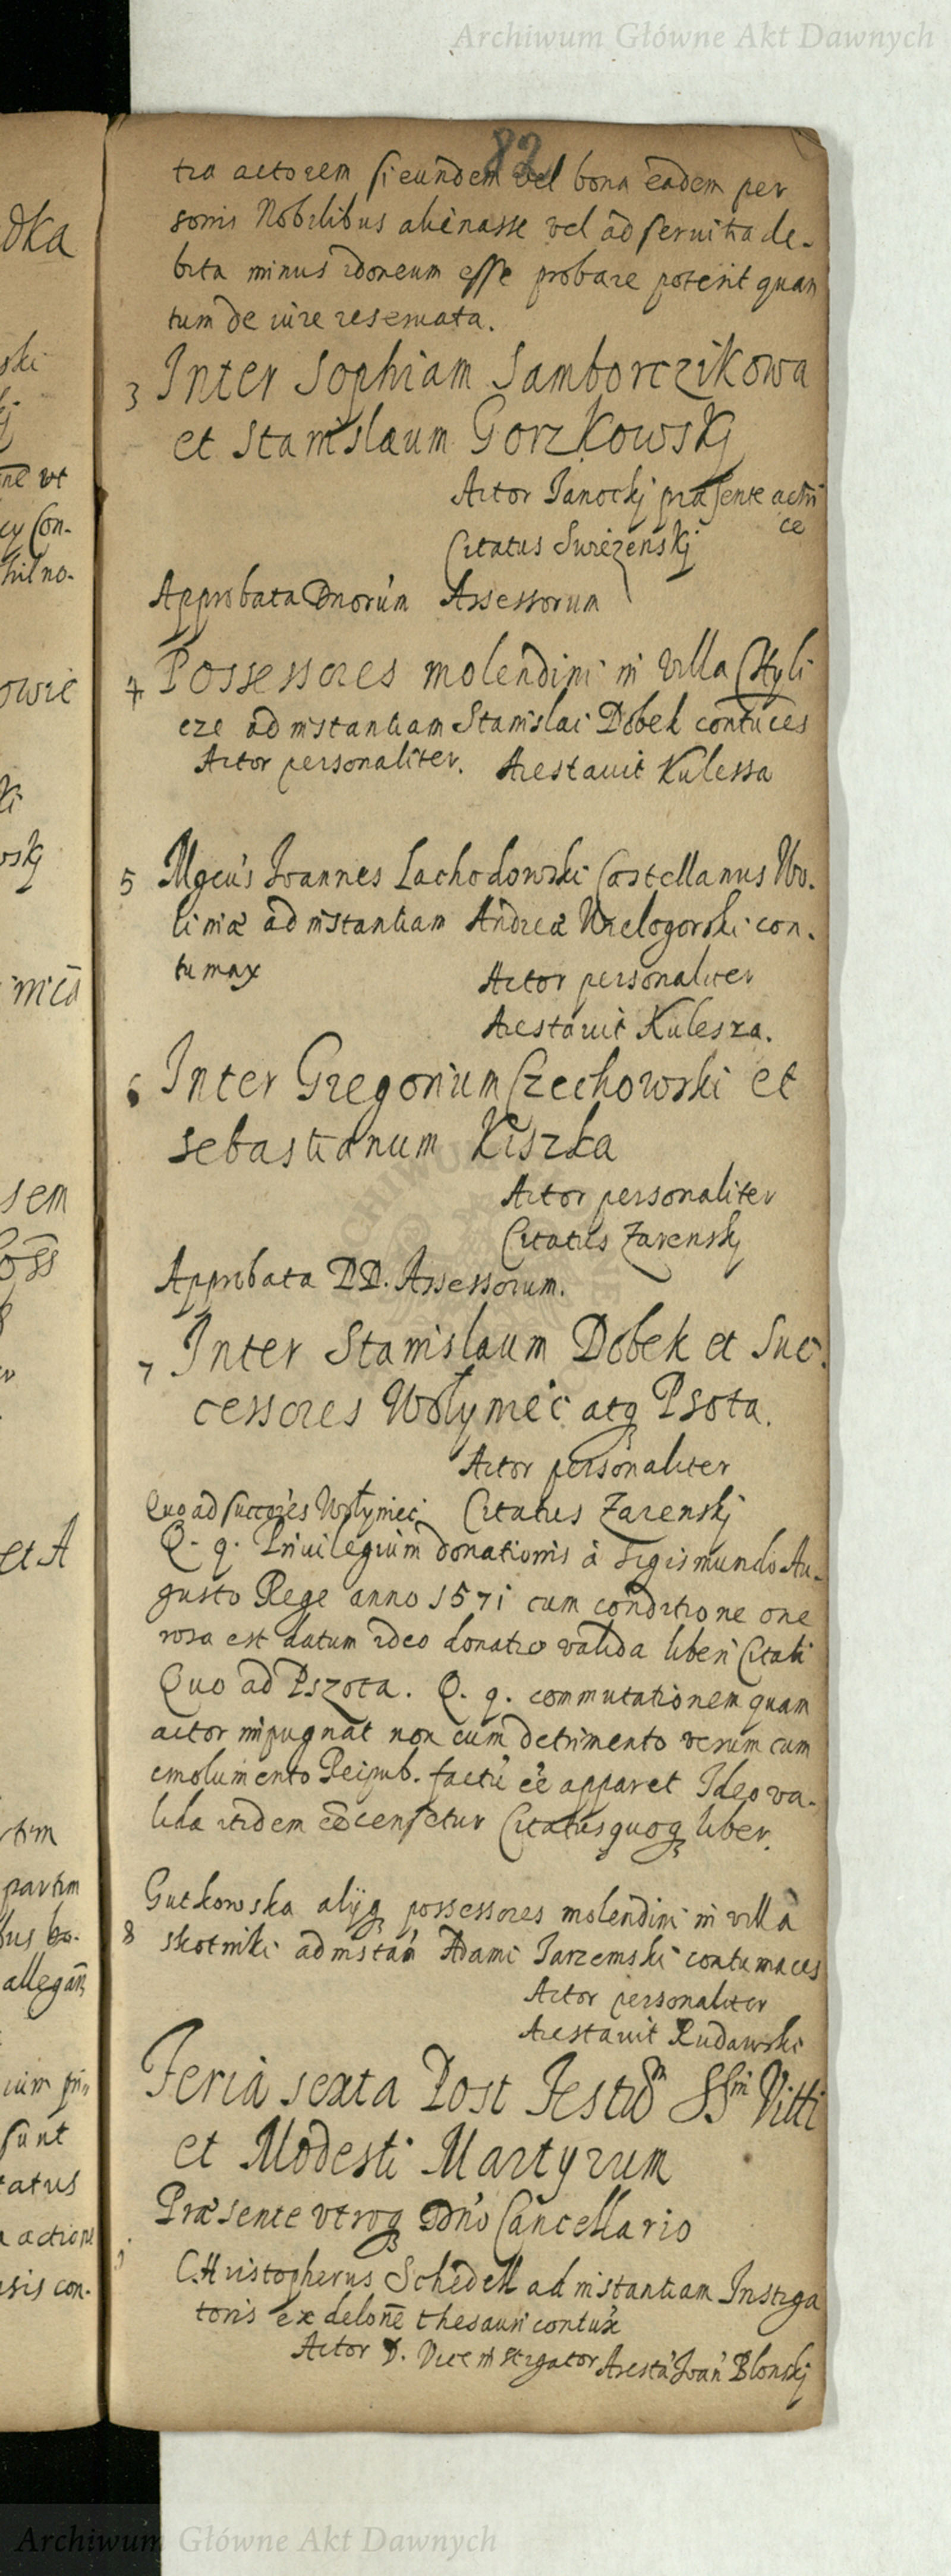 Archiwum Główne Akt Dawnych
82
tra actorem si eundem vel bona eadem per
sonis Nobilibus alienasse vel ad seruitia de-
bita minus idoneum esse probare poterit quan
tum de iure reseruata.
3 Inter Sophiam Samborczikowa
et Stanislaum Gorzkowskj
Actor Janockj præsente actri
ce
Citatus Swiezenskj
Approbata Dnorum Assessorum
4 Possessores molendini in villa Chyli
cze ad instantiam Stanislai Dobek contuces
Actor personaliter. Arestauit Kulessa
5 Mgcus Ioannes Lachodowski Castellanus Wo-
liniæ ad instantiam Andreæ Wielogorski con-
tumax Actor personaliter
Arestauit Kulesza.
6 Inter Gregorium Czechowski et
Sebastianum Kiszka
Actor personaliter
Citatus Zarenskj
Approbata DD. Assessorum.
7 Inter Stanislaum Dobek et Suc-
cessores Wołyniec atq Psota.
Actor personaliter
Quo ad succores Wołyniec Citatus Zarenskj
Q. q. Priuilegium donationis à Sigismundo Au-
gusto Rege anno 1571 cum conditione one
rosa est datum ideo donatio valida liberi Citati
Quo ad Pszota. Q. q. commutationem quam
actor impugnat non cum detrimento verum cum
emolumento Reipub. factũ ẽe apparet Ideo va-
lida itidem censetur Citatus quoq liber.
Gutkowska alijq possessores molendini in villa
8 Skotniki ad instañ Adami Jarzemski contumaces
Actor personaliter
Arestauit Rudawski
Feria sexta Post Festum SSm Vitti
et Modesti Martyrum
Præsente vtroq Dno Cancellario
CHristopherus Schedell ad instantiam Instiga
toris ex delone thesauri contux
Actor D. Vice instigator Aresta Ioan Blonskj
Archiwum Główne Akt Dawnych